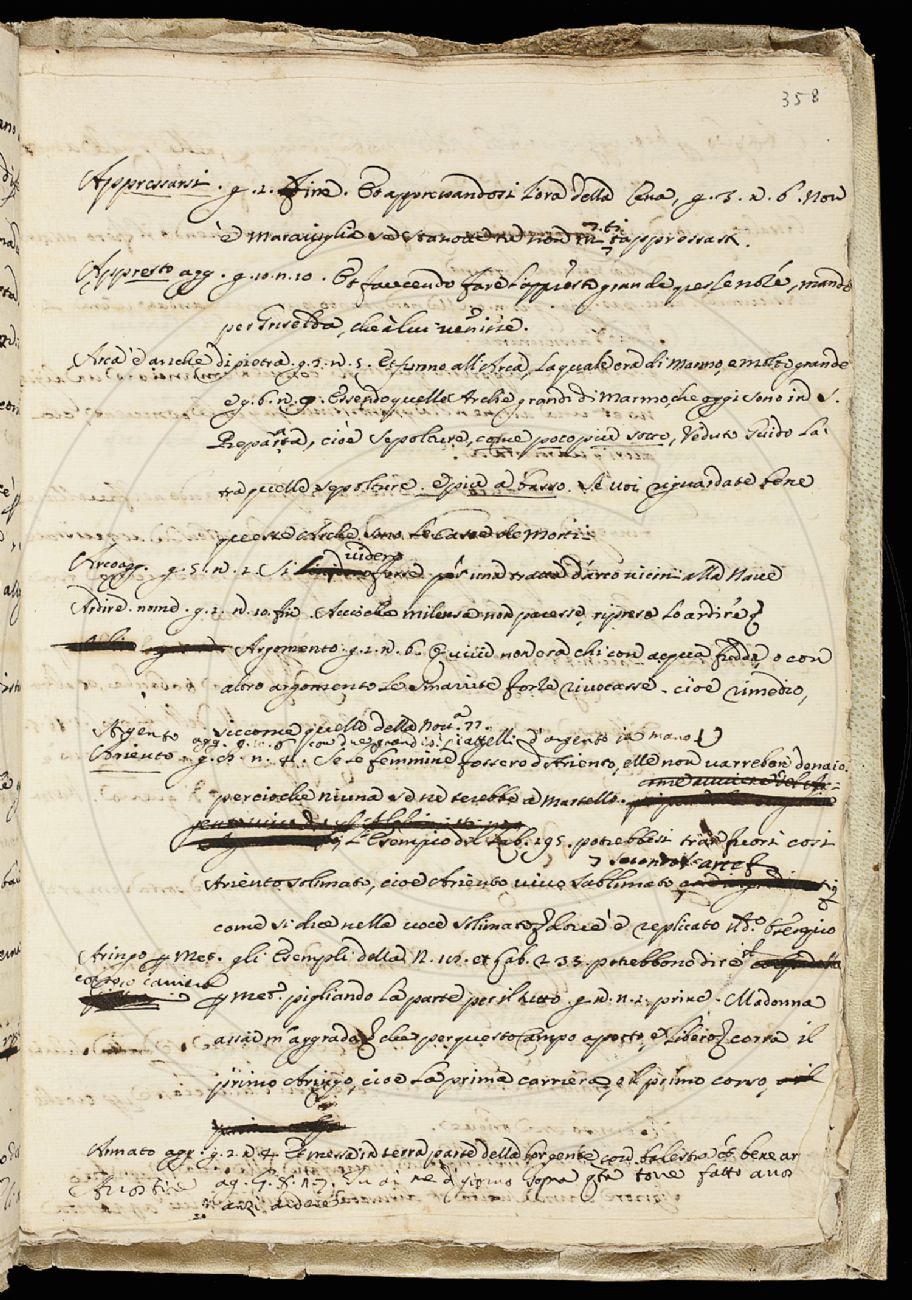 358
Appressarsi . g. 2. fine. Et appressandosi l'ora della Cena, g. 3. n. 6. Non
è maraviglia se stanotte tu non mi t'appressasti.
Appresto agg. g. 10. n. 10. Et faccendo fare l'appresto grande per le nozze, mandò
per Griselda, che a lui venisse.
Arca è anche di pietra. g. 2. n. 5. Et furono all'Arca, la quale era di Marmo, e molto grande
e g. 6. n. 9. Essendo quelle Arche grandi di Marmo, che oggi sono in S.
Reparata, cioè Sepolture, come poco più sotto, Veduto Guido la
tra quelle sepolture. e più a basso. Se voi riguardate bene
queste Arche sono le Case de Morti
Arco agg. g. 5. n. 2. Si videro forse per una tratta d'arco vicini alla Nave
Ardire. nome. g. 2. n. 10. fine Acciocchè milensa non paresse, riprese lo ardire
Argomento. g. 2. n. 6. E quivi non era chi con acqua fredda, o con
altro argomento le smarrite forze rivocasse. cioè rimedio,
siccome quello della Nov.ª 77.
Argento agg. g. 10. n. 6 con due grandissimi piattelli d'argento in mano
Ariento g. n. 4. Se le femmine fossero d'Ariento, elle non varrebbon denaio,
perciocchè niuna se ne terrebbe a martello.
L'Esempio di Lab. 195. potrebbesi trar fuori così
secondo l'arte
Ariento solimato, cioè Ariento vivo sublimato
come si dice nella voce Solimato dove è replicato il d.º Esempio
Aringo p Met. gli Esempli della N. et Lab. 233. potrebbono dire
corso o carriera p Met.ª pigliando la parte per il tutto. g. n. n. 2. prine. Madonna
assai m'aggrada che per questo Campo aperto, e libero corra il
primo Aringo, cioè la prima carriera, e il primo corso,
Armato agg. g. 2. n. 4. Et messa in terra parte della lor gente con balestra et bene ar